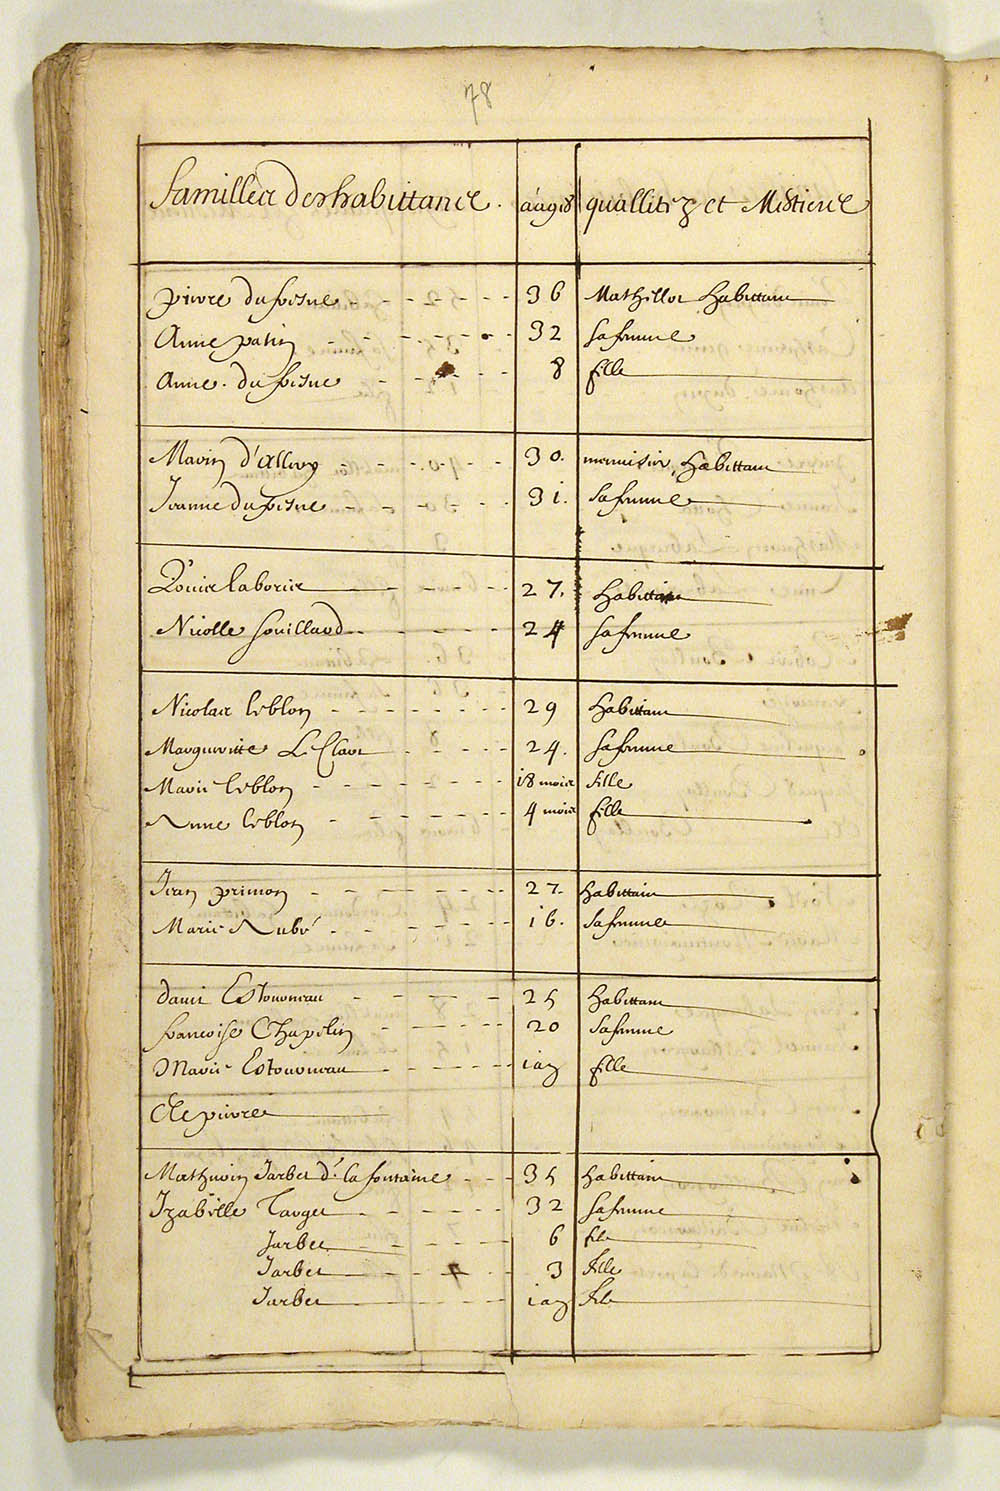 78
familles des habittans . aages quallitez et Mestiers
pierre dufresne - - - - - - - 36 Mathellot habittant
Anne patin - - - - - - 32 sa femme
Anne . dufresne - - - - 8 fille
Marin d'allery - - - - - - 30. menuisier, habittant
Jeanne dufresne - - - - - - 31. sa femme
Louis laborie - - - - 27. habittant
Nicolle souillard - - - - - - 24 sa femme
Nicolas leblon - - - - - - - - 29 habittant
Margueritte Le Clerc - - - - - 24. sa femme
Marie leblon - - - - - - - - 18 mois fille
Anne leblon - - - - - - - - 4 mois fille
Jean primon - - - - - - - - 27. habittant
Marie Aubé - - - - - - - - 16. sa femme
davi Estourneau - - - - - 25 habittant
francoise Chapelin - - - - - - 20 sa femme
Marie Estourneau - - - - - - 1 an fille
Mathurin Jarbet d. la fontaine - - - 35 habittant
Izabelle Tauget - - - - - - 32 sa femme
Jarbet - - - - - - 6 fils
Jarbet - - - - - 3 fille
Jarbet - - - - - - 1 an fils